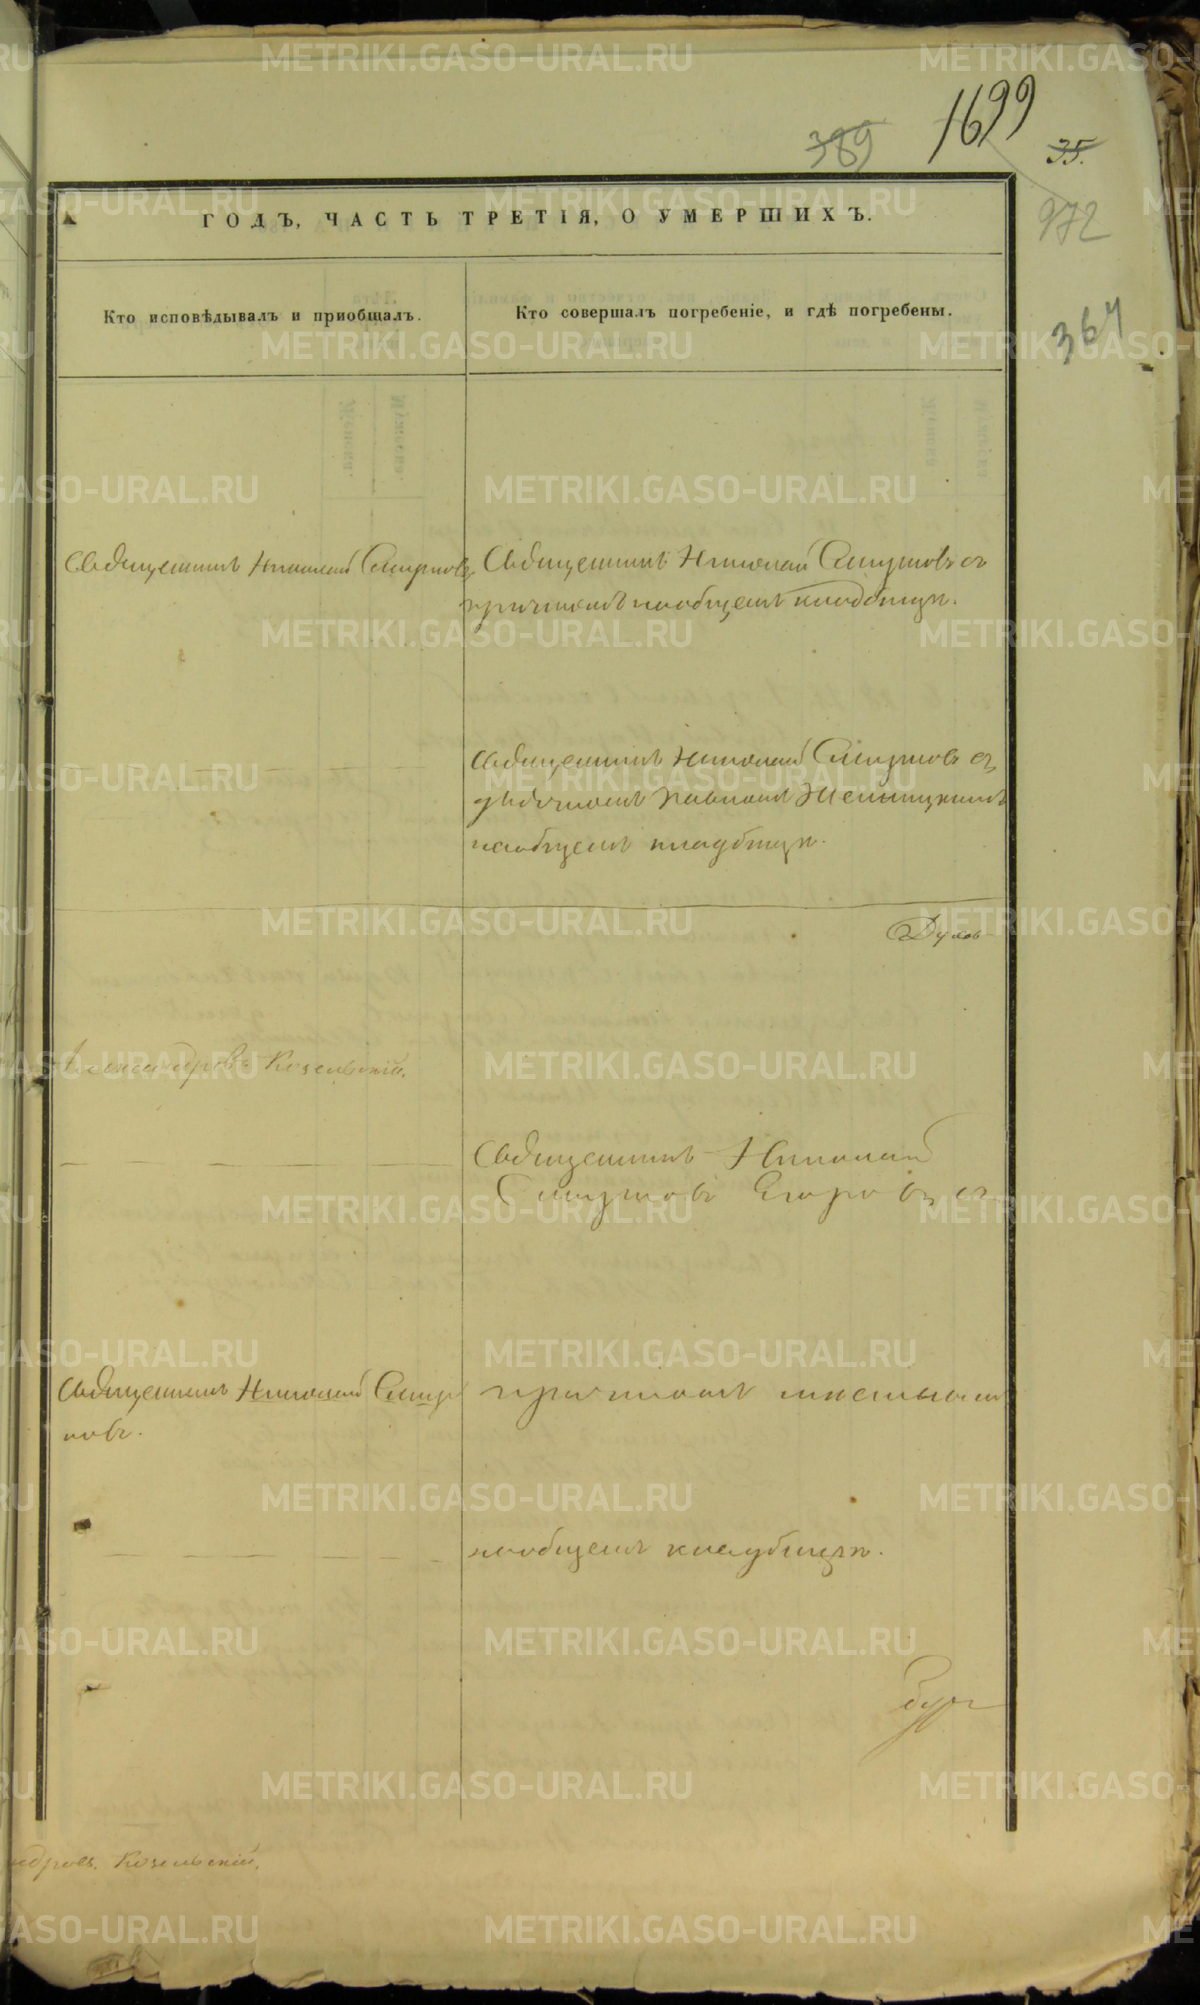 1699
389
35.
972
367
ГОДЪ, ЧАСТЬ ТРЕТІЯ, О УМЕРШИХЪ.
Кто исповѣдывалъ и приобщалъ.
Кто совершалъ погребеніе, и гдѣ погребены.
Священникъ Николай Смирновъ
Священникъ Николай Смирновъ съ
причтомъ на общемъ кладбищѣ.
Священникъ Николай Смирновъ съ
дьячкомъ Павломъ
на общемъ кладбищѣ.
Александровъ Козельскій.
Священникъ Николай
Смирновъ съ
Священникъ Николай Смир
новъ.
причтомъ
на общемъ кладбищѣ.
ндровъ Козельскій.
METRIKI.GASO-URAL.RU